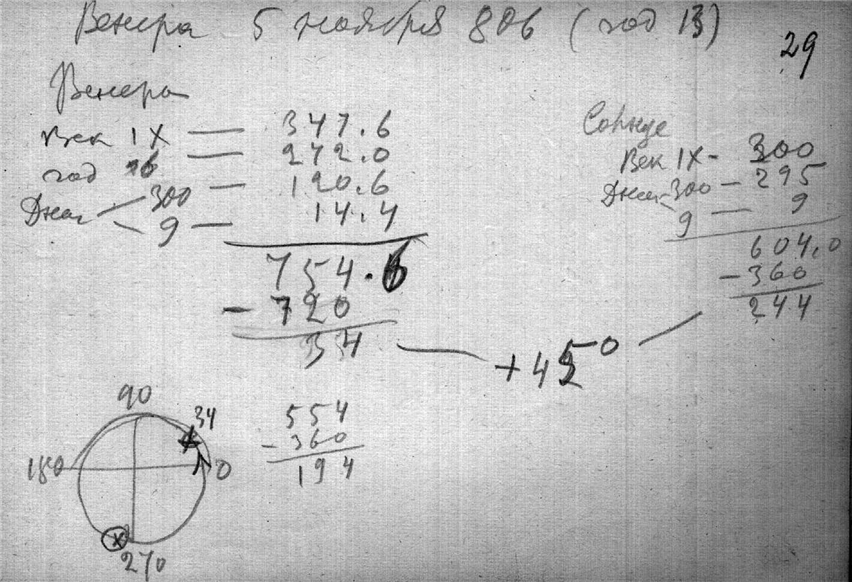 Венера 5 ноября 806 (год 13)
29
Венера
Век IX — 347.6
год — 272.0
Дней 300 — 120.6
9 — 14.4
754.6
- 720
34
Солнце
Век IX - 300
Дней 300 - 295
9 — 9
604,0
- 360
244
+45°
554
- 360
194
90
34
180
0
270